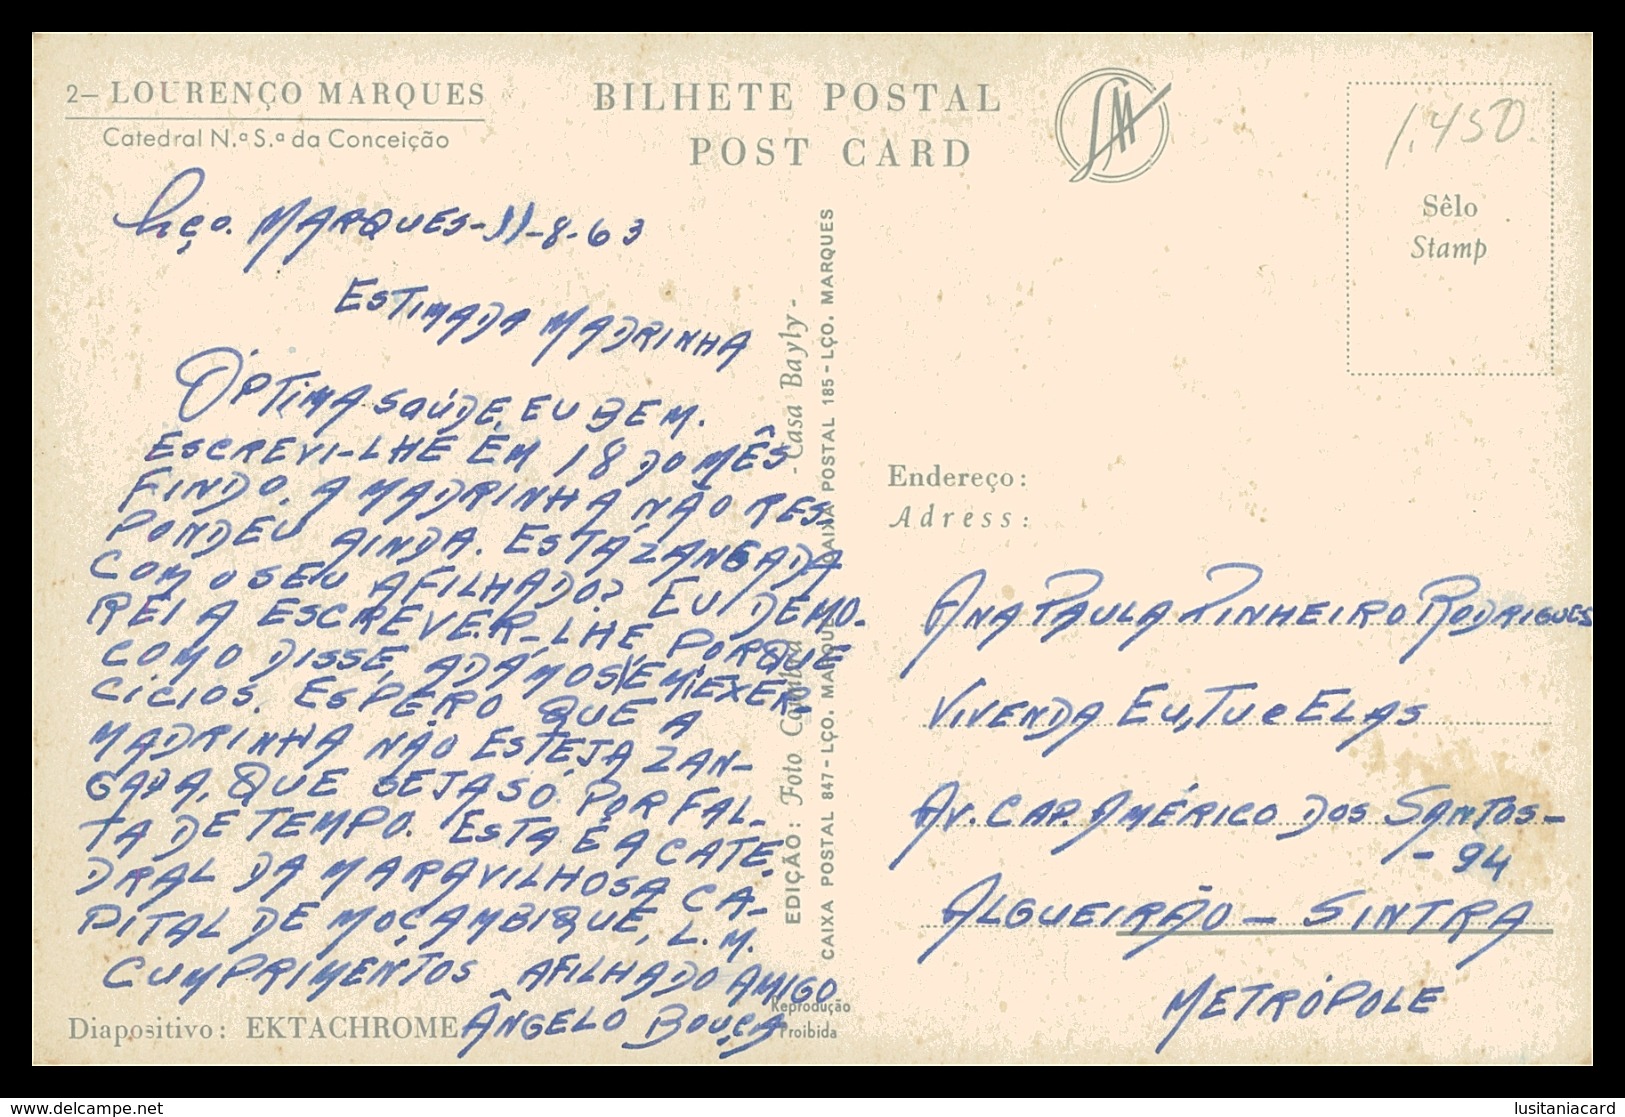 2– LOURENÇO MARQUES
Catedral N.ª S.ª da Conceição
BILHETE POSTAL
POST CARD
1.450
Sêlo
Stamp
Lço. MARQUES-11-8-63
ESTIMADA MADRINHA
ÓPTIMA SAÚDE, EU BEM.
ESCREVI-LHE EM 18 DO MÊS
FINDO. A MADRINHA NÃO RES-
PONDEU AINDA. ESTÁ ZANGADA
COM O SEU AFILHADO? EU DEMO-
REI A ESCREVER-LHE PORQUE
COMO DISSE, ANDÁMOS EM EXER-
CÍCIOS. ESPERO QUE A
MADRINHA NÃO ESTEJA ZAN-
GADA, QUE SEJA SÓ POR FAL-
TA DE TEMPO. ESTA É A CATE-
DRAL DA MARAVILHOSA CA-
PITAL DE MOÇAMBIQUE, L. M.
CUMPRIMENTOS AFILHADO AMIGO
ÂNGELO BOUÇA
Diapositivo: EKTACHROME
Reprodução
Proibida
EDIÇÃO: Foto Coimbra - Casa Bayly -
CAIXA POSTAL 847 - LÇO. MARQUES CAIXA POSTAL 185 - LÇO. MARQUES
Endereço:
Adress:
ANA PAULA PINHEIRO RODRIGUES
VIVENDA EU, TU e ELAS
AV. CAP. AMÉRICO DOS SANTOS-
- 94
ALGUEIRÃO - SINTRA
METRÓPOLE
https://www.delcampe.net
lusitaniacard